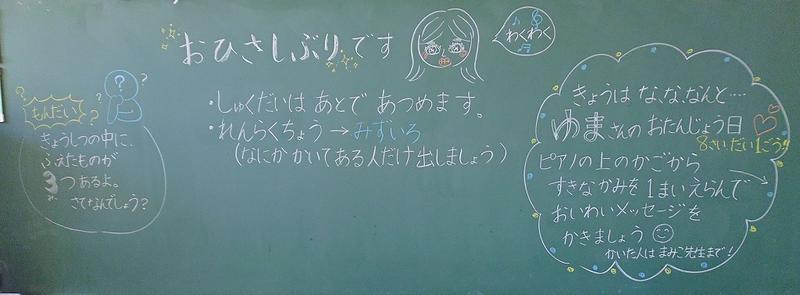 おひさしぶりです
わくわく
・しゅくだいは あとで あつめます。
・れんらくちょう→みずいろ
(なにか かいてある人だけ出しましょう)
もんだい
きょうしつの中に、
ふえたものが
3つあるよ。
さてなんでしょう？
きょうは な、な、なんと‥‥
ゆまさんの おたんじょう日
8さい だい1ごう!!
ピアノの上のかごから
すきなかみを1まいえらんで
おいわいメッセージを
かきましょう
かいた人は まみこ先生まで！